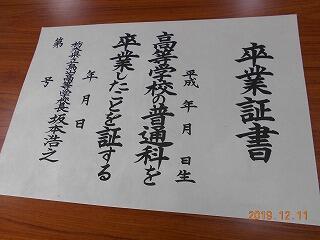 卒業証書
平成 年 月 日生
高等学校の普通科を
卒業したことを証する
年 月 日
高等学校長 坂本浩之
第 号
2019.12.11